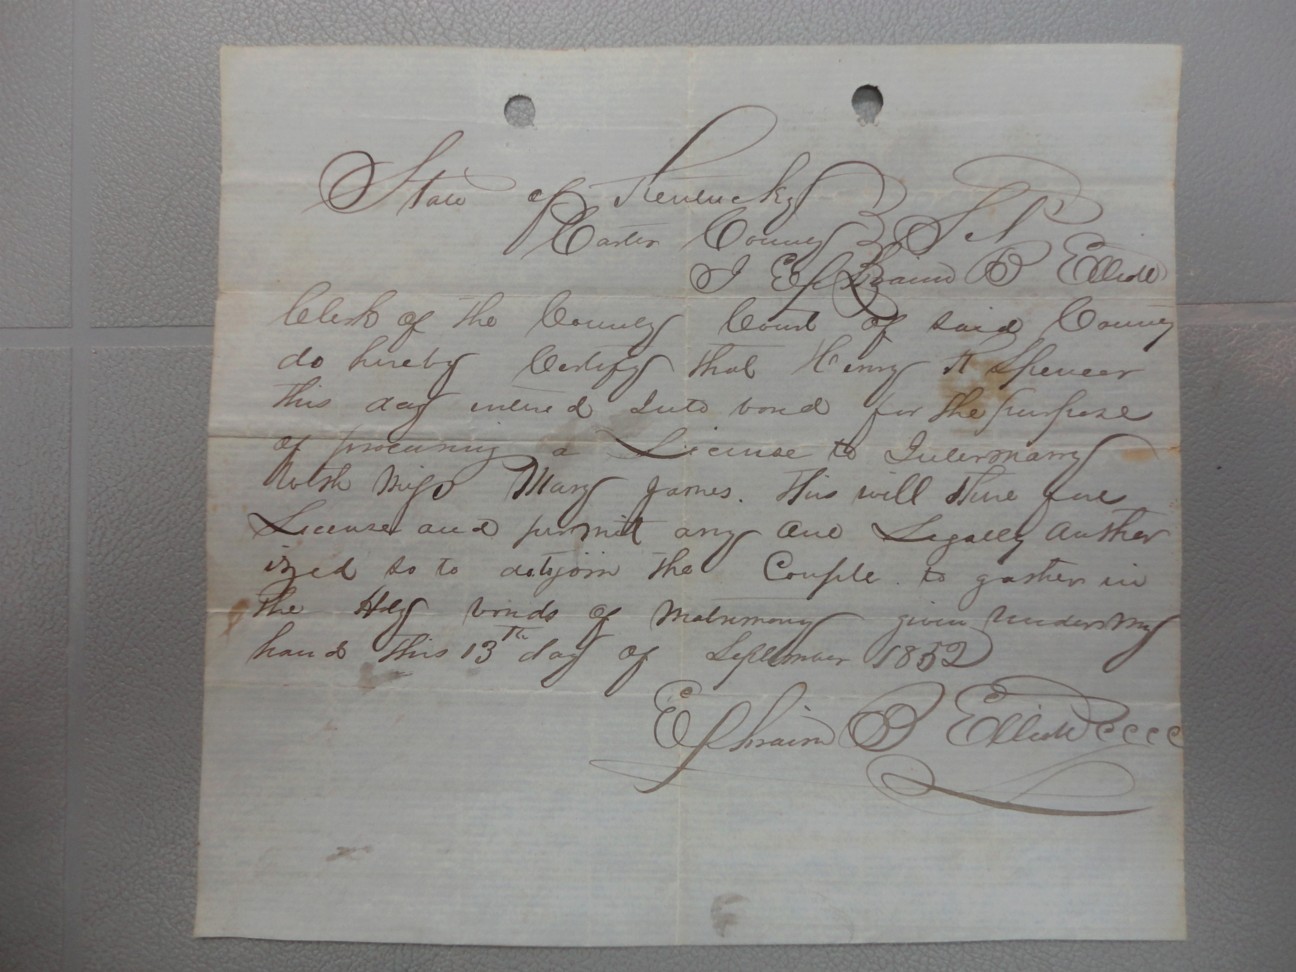 State of Kentucky
Carter County } Sct
I Ephraim B Elliott
Clerk of the County Court of said County
do hereby Certify that Henry H Spencer
this day entered Into bond for the purpose
of procuring a License to Intermarry
With Miss Mary James. This will there fore
License and permit any one Legally author
ized so to do to join the Couple to gather in
the Holy bonds of Matrimony given under my
hand this 13th day of September 1852
Ephraim B Elliott CCCC